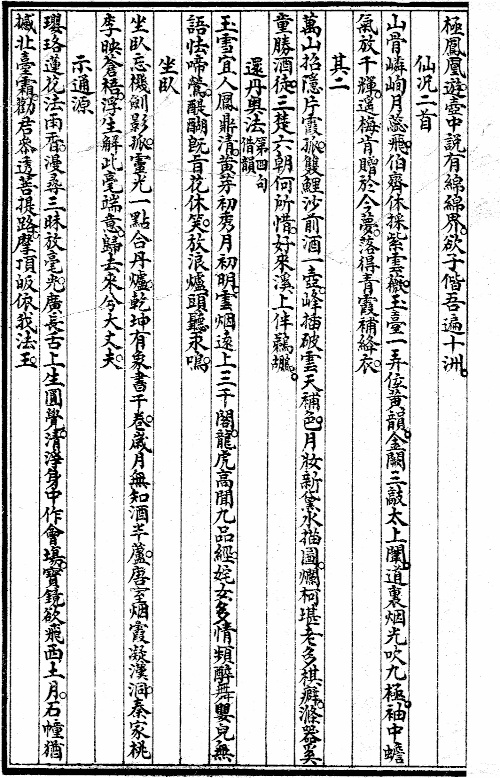 極鳳凰遊壺中說有綿綿界欲子偕吾遍十洲
仙况二首
山骨嶙峋月蕊飛伯齊休採紫雲薇玉臺一弄倭黃韻金闕三敲太上闈道裏烟光吹九極袖中蟾
氣放千輝遥梅肯贈於今夢落得青霞補絳衣
其二
萬山招隱片霞孤雙鯉沙前酒一壺峰插破雲天補色月妝新黛水描圖爛柯堪老多棋癖滌器奚
童勝酒徒三楚六朝何所惜好來溪上伴鵜鶘
還丹奧法借第四句韻
玉雪宜人鳳鼎清黃芽初秀月初明雲烟遠上三千閣龍虎高聞九品經姹女多情頻醉舞嬰兒無
語怯啼鶯醍醐旣旨花休笑放浪爐頭聽汞鳴
坐臥
坐臥忘機劍影孤靈光一點合丹爐乾坤有象書千卷歲月無知酒半蘆唐室烟霞凝漢洞秦家桃
李映蒼梧浮生解此毫端意歸去來兮大丈夫
示通源
瓔珞蓮花法南香漫尋三昧放毫光廣長舌上生圓覺清淨身中作會場寶鏡欲飛西土月石幢猶
撼北臺霜勸君參透菩提路摩頂皈依我法王